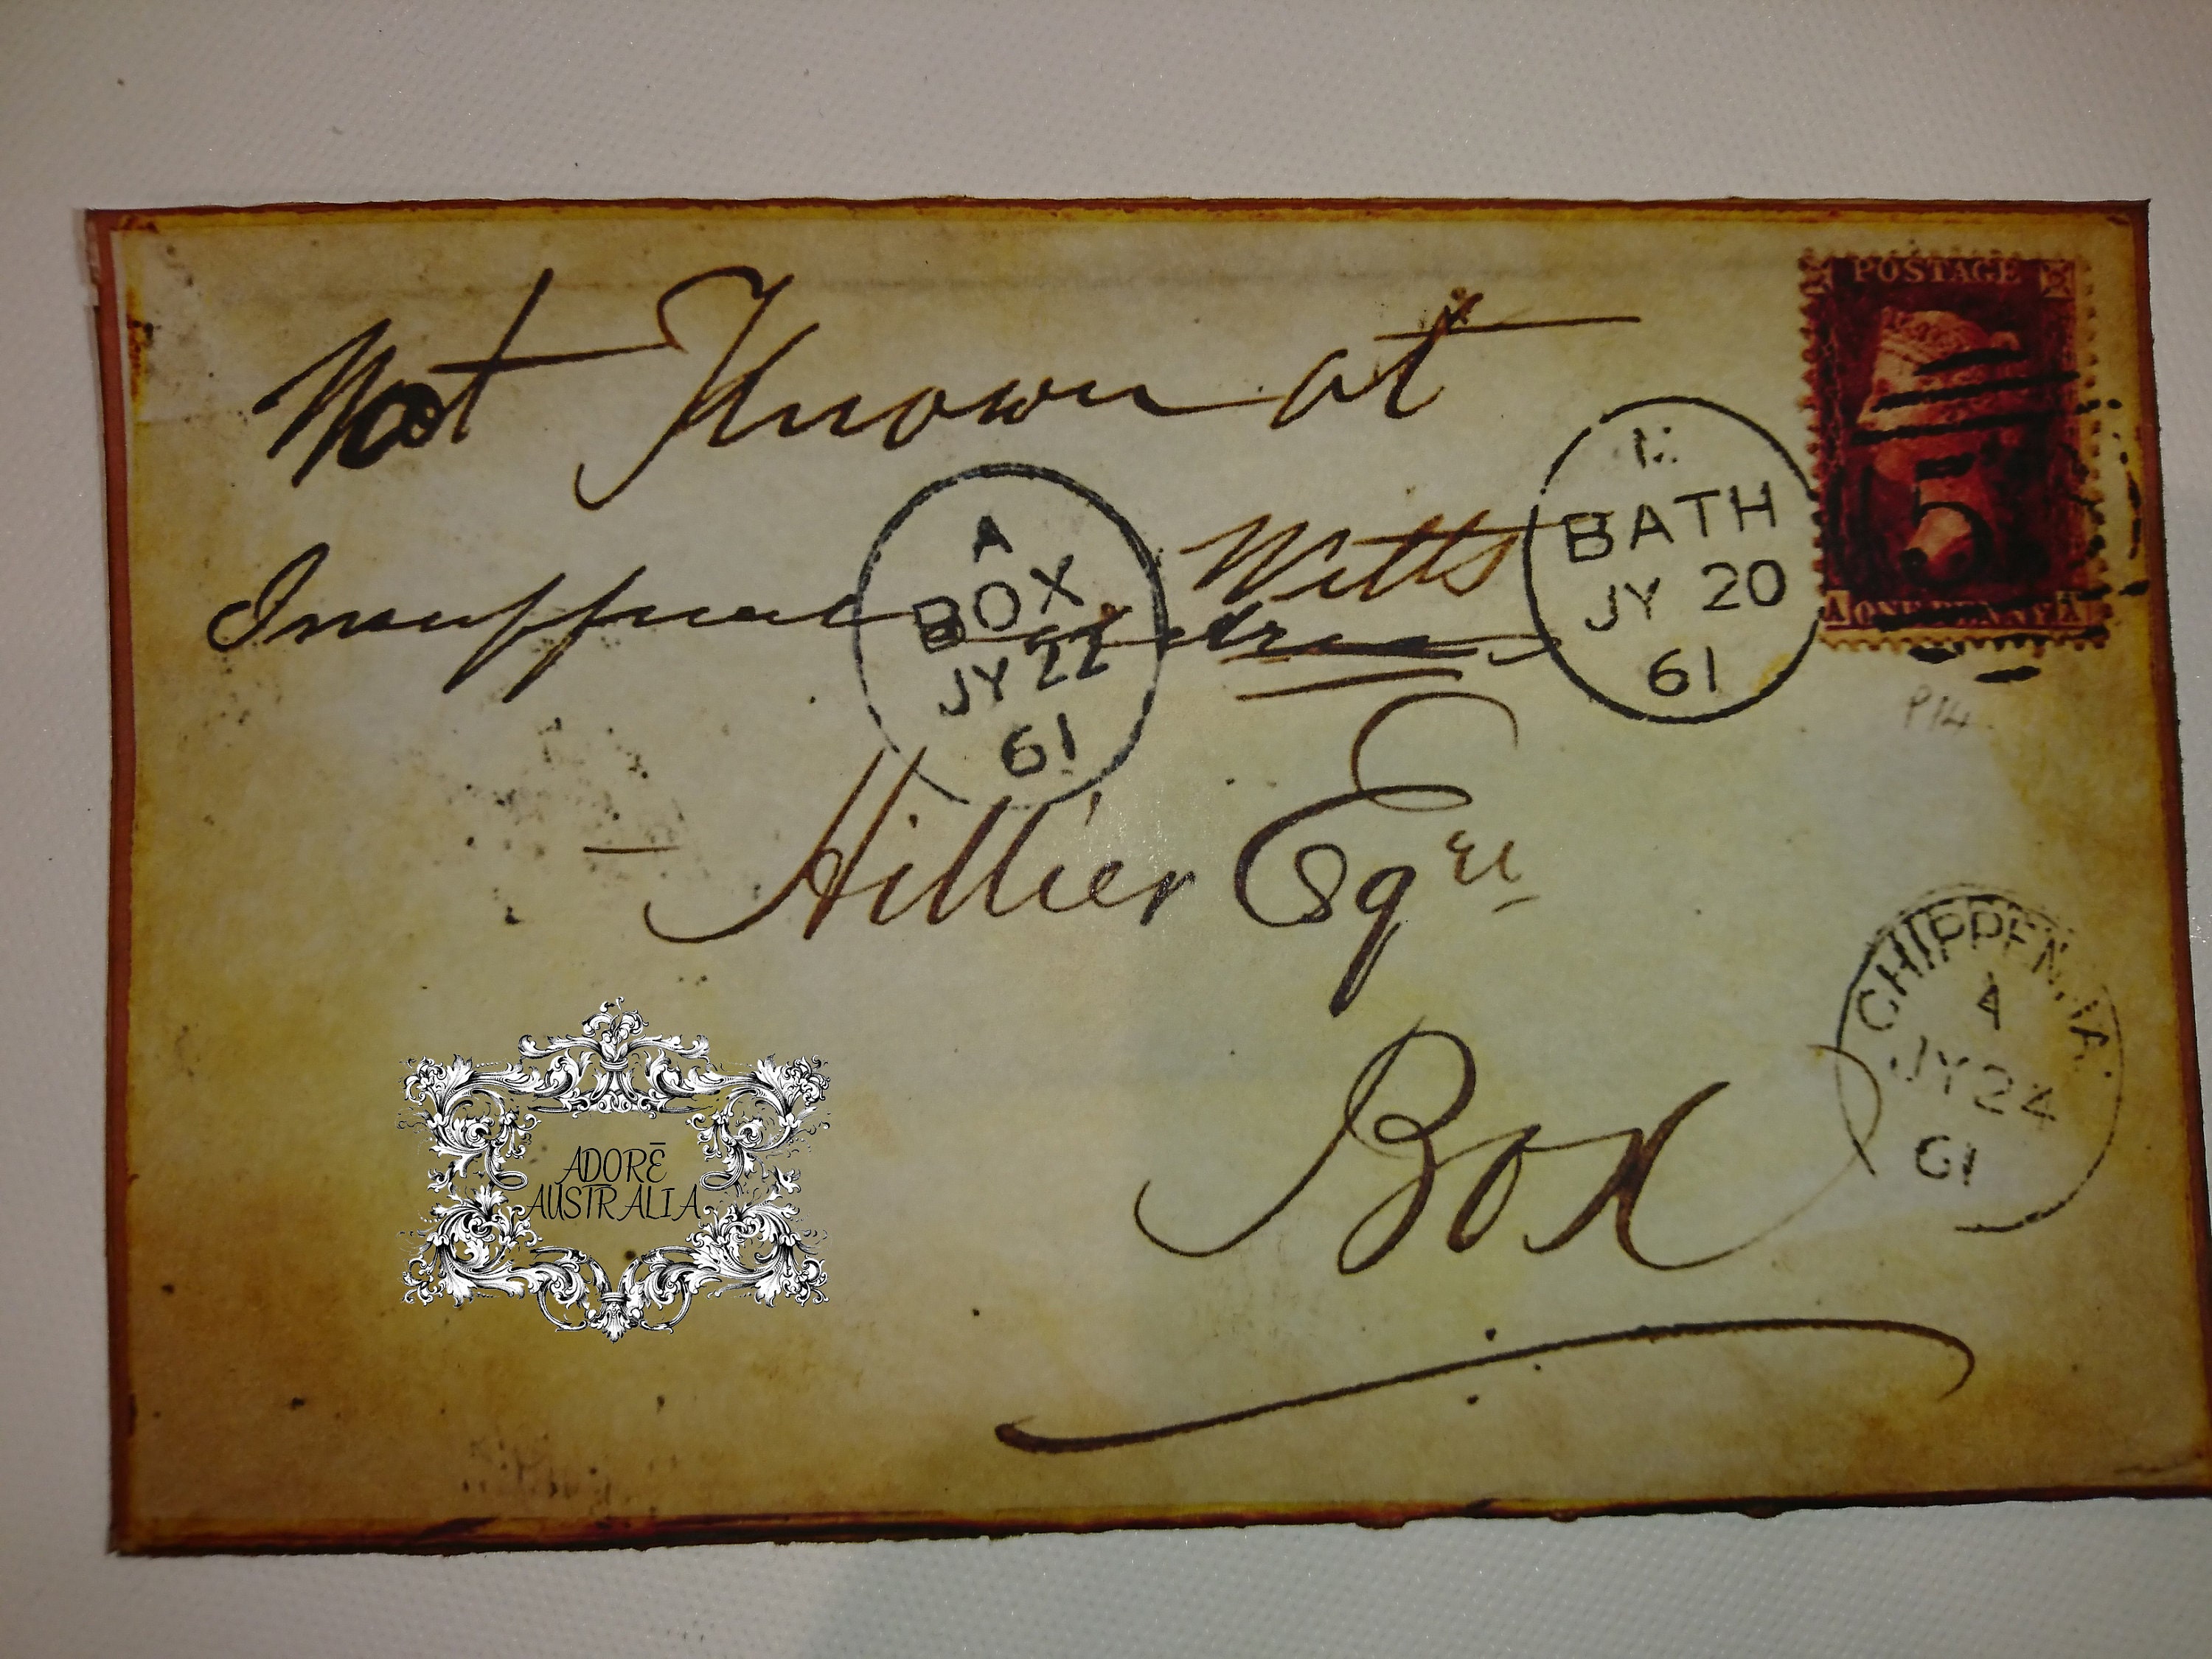 POSTAGE
Not Known at
Wilts
BATH
JY 20
61
5
ONE PENNY
A
BOX
JY 22
61
P14
Hillier Esqre
CHIPPENHA
A
JY 24
61
Box
ADORĒ
AUSTRALIA